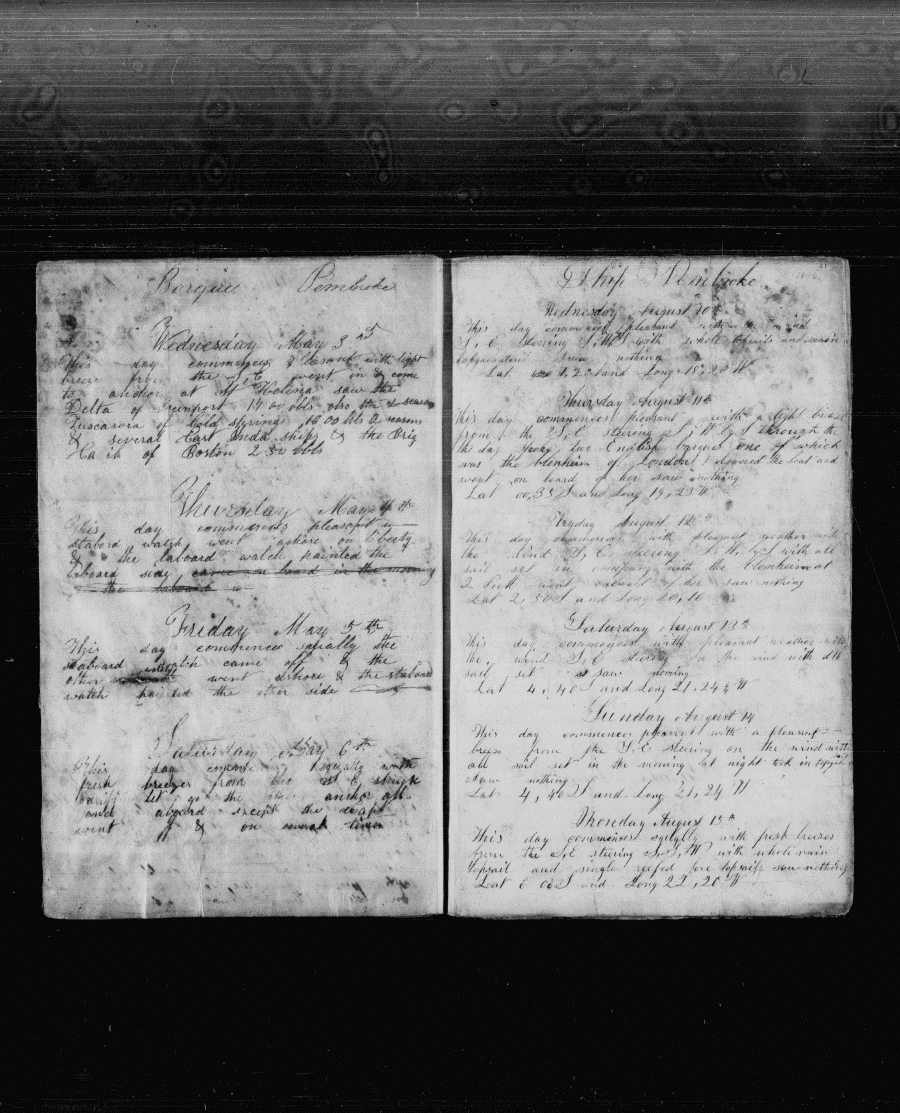 Barque Pembroke
Wednesday May 3rd
This day commences pleasant with light
breeze from the S E went in & come
to anchor at St Helena saw the
Delta of Greenport 1400 obls
Tuscarora of Cold springs 1600 bls 2 seasons
& several East India ships & the Brig
of Boston 250 obls
Thursday May 4th
This day commences pleasant
stabord watch went ashore on liberty
& the laboard watch painted the
laboard side came on board in the morning
Friday May 5th
This day commences squally the
staboard watch came off & the
other went ashore & the staboard
watch painted the other side
Saturday May 6th
This day comense squally with
fresh breezes from the S E
let go the anchor all
aboard except the capt
went off & on several times
Ship Pembroke
Wednesday August 10th
This day commences pleasant with
S, E steering S, W with whole topsails and main
saw nothing
Lat and Long 18, 20 W
Thursday August 11th
This day commences pleasant with a light breeze
from the S, E steering S, W by S through the
the day two English barques one of which
was the blenheim of London lowered the boat and
went on board of her saw nothing
Lat 00,35 S and Long 19, 23 W
Fryday August 12th
This day commences with pleasant weather with
the wind S, E steering S, W, by S with all
sail set in company with the blenheim at
2 went aboard of her saw nothing
Lat 2, 50 S and Long 20, 16
Saturday August 13th
This day commences with pleasant weather with
the wind S, E steering on the wind with all
sail set saw nothing
Lat 4, 40 S and Long 21, 24 W
Sunday August 14
This day commences pleasant with a pleasant
breeze from the S, E steering on the wind with
all sail set in the morning at night tok in topgal
saw nothing
Lat 4, 40 S and Long 21, 24 W
Monday August 15th
This day commenses with fresh breezes
from the S, E steering S, S, W with whole main
topsail and single reefed fore topsail saw nothing
Lat 6 06 S and Long 22, 20 W